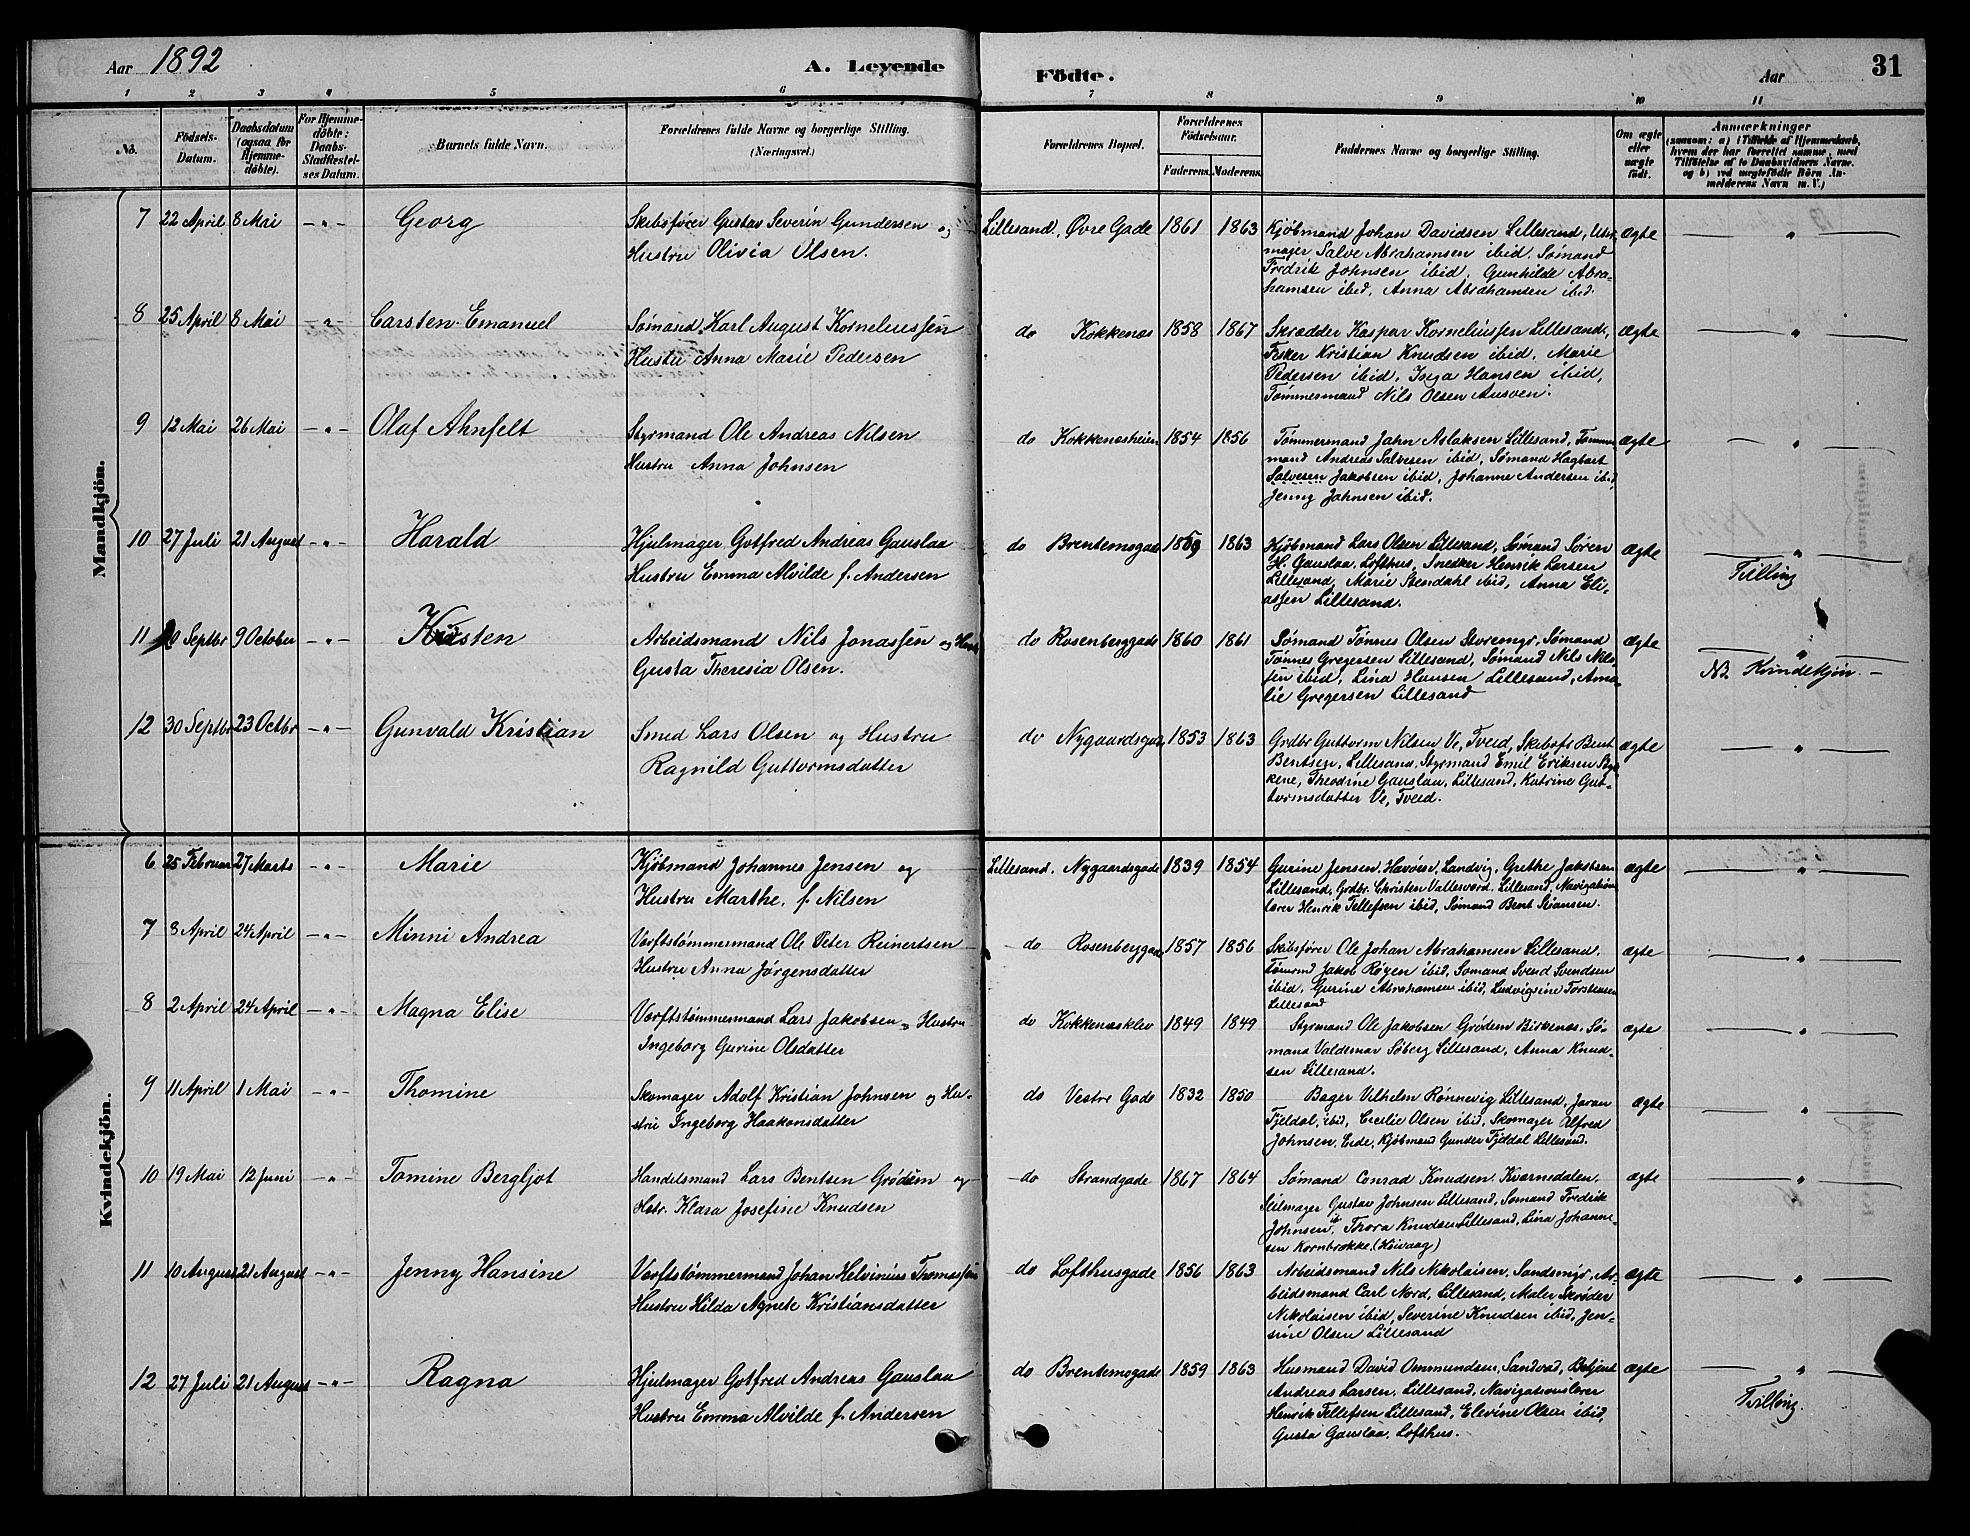 Aar 1892
A. Levende
Födte.
Aar
31
1 2 3 4 5 6 7 8 9 10 11
No.
Födsels-
Datum.
Daabsdatum
(ogsaa for
Hjemme-
döbte).
For Hjemme-
döbte:
Daabs-
Stadfæstel-
ses Datum.
Barnets fulde Navn.
Forældrenes fulde Navne og borgerlige Stilling.
(Næringsvei.)
Forældrenes Bopæl.
Forældrenes
Födselsaar.
Faderens. Moderens.
Faddernes Navne og borgerlige Stilling.
Om ægte
eller
uægte
födt.
Anmærkninger
(saasom: a) i Tilfælde af Hjemmedaab,
hvem der har forrettet samme, med
Tilföielse af to Daabsvidners Navne.
og b) ved uægtefödte Börn An-
melderens Navn m. V.)
Mandkjön.
7 22 April 8 Mai — " — Georg
Skibsfører Gustav Severin Gundersen og
Hustru Olivia Olsen.
Lillesand, Øvre Gade 1861 1863
Kjøbmand Johan Davidsen Lillesand, Uhr-
mager Salve Abrahamsen ibid. Sømand
Fredrik Johnsen ibid, Gunhilde Abra-
hamsen ibid, Anna Abrahamsen ibid.
ægte — " —
8 25 April 8 Mai — " — Carsten Emanuel
Sømand Karl August Korneliussen
Hustru Anna Marie Pedersen
do Kokkenes 1858 1867
Skrædder Kaspar Korneliussen Lillesand,
Fisker Kristian Knudsen ibid, Marie
Pedersen ibid, Inga Hansen ibid,
Tømmermand Nils Olsen
ægte — " —
9 12 Mai 26 Mai — " — Olaf Ahnfelt
Styrmand Ole Andreas Nilsen
Hustru Anna Johnsen
do Kokkenesheien 1854 1856
Tømmermand Jahn Aslaksen Lillesand, Tømmer
mand Andreas Salvesen ibid, Sømand Hagbart
Salvesen Jakobsen ibid, Johanne Andersen ibid
Jenny Jahnsen ibid.
ægte — " —
10 27 Juli 21 August — " — Harald
Hjulmager Gotfred Andreas Gauslaa
Hustru Emma Alvilde f. Andersen
do Brentemogade 1859 1863
Kjøbmand Lars Olsen Lillesand, Sømand Søren
H. Gauslaa, Lofthus, Snedker Henrik Larsen
Lillesand, Marie Stendahl ibid, Anna Eli-
assen Lillesand.
ægte — " —
Tvilling
11 Septbr 9 October — " — Kirsten
Arbeidsmand Nils Jonassen og Hustr
Gusta Theresia Olsen.
do Rosenberggade 1860 1861
Sømand Tønnes Olsen Storemyr, Sømand
Tønnes Gregersen Lillesand, Sømand Nils Nils-
sen ibid, Lina Hansen Lillesand, Ama-
lie Gregersen Lillesand
ægte — " —
NB Kvindekjøn. —
12 30 Septbr 23 Octbr — " — Gunvald Kristian
Smed Lars Olsen og Hustru
Ragnild Guttormsdatter
do Nygaardsgade 1853 1863
Grdbr Guttorm Nilsen Ve, Tveid, Skibsfr Bent
Bentsen, Lillesand, Styrmand Emil Eriksen Bir-
kene, Theodrine Gauslaa, Lillesand, Katrine Gut-
tormsdatter Ve, Tveid.
ægte — " —
Kvindekjön.
6 25 Februar 27 Marts — " — Marie
Kjøbmand Johannes Jensen og
Hustru Marthe, f. Nilsen
Lillesand. Nygaardsgade 1839 1854
Gurine Jensen, Havøen, Landvig, Grethe Jakobsen
Lillesand, Grdbr. Christen Vallesverd, Lillesand, Navigation
lærer Henrik Tellefsen ibid, Sømand Bent
ægte — " —
7 3 April 24 April — " — Minni Andrea
Verftstømmermand Ole Peter Reinertsen
Hustru Anna Jørgensdatter
do Rosenberggade 1857 1856
Skibsfører Ole Johan Abrahamsen Lillesand,
Tømrmd Jakob Røgen ibid, Sømand Svend Svendsen
ibid, Gurine Abrahamsen ibid, Ludvigsine Torstensen
Lillesand
ægte — " —
8 2 April 24 April — " — Magna Elise
Verftstømmermand Lars Jakobsen og Hustru
Ingeborg Gurine Olsdatter
do Kokkenesklev 1849 1849
Styrmand Ole Jakobsen Grødem Birkenes, Sø-
mand Valdemar Søberg Lillesand, Anna Knud-
sen Lillesand.
ægte — " —
9 11 April 1 Mai — " — Thomine
Skomager Adolf Kristian Johnsen og Hu-
stru Ingeborg Haakonsdatter
do Vestre Gade 1832 1850
Bager Vilhelm Rønnevig Lillesand, Joran
Fjeldal, ibid, Cecilie Olsen ibid, Skomager Alfred
Johnsen, Eide, Kjøbmand Gunder Fjeldal Lillesand.
ægte — " —
10 19 Mai 12 Juni — " — Tomine Bergljot
Handelsmand Lars Bentsen Grødum og
Hstr. Klara Josefine Knudsen
do Strandgade 1867 1864
Sømand Conrad Knudsen Kvernedalen,
Seilmager Gustav Johnsen Lillesand, Sømand Fredrik
Johnsen ib, Thora Knudsen Lillesand, Lina Johanne-
sen Kornbrække, (Høivaag)
ægte — " —
11 10 August 21 August — " — Jenny Hansine
Verftstømmermand Johan Helvinius Thomassen
Hustru Hilda Agnete Kristiansdatter
do Lofthusgade 1856 1863
Arbeidsmand Nils Nikolaisen, Sandsmyr, Ar-
beidsmand Carl Nord, Lillesand, Maler Skrøder
Nikolaisen ibid, Severine Knudsen ibid, Jen-
sine Olsen Lillesand
ægte — " —
12 27 Juli 21 August — " — Ragna
Hjulmager Gotfred Andreas Gauslaa
Hustru Emma Alvilde f. Andersen
do Brentemogade 1859 1863
Husmand David Ommundsen, Sandvad, Betjent
Andreas Larsen, Lillesand, Navigationslærer
Henrik Tellefsen Lillesand, Elevine Olsen ibid,
Gusta Gauslaa, Lofthus.
ægte — " —
Tvilling.